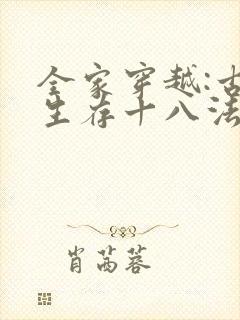 全家穿越:古
生存十八法
肖茜蓉